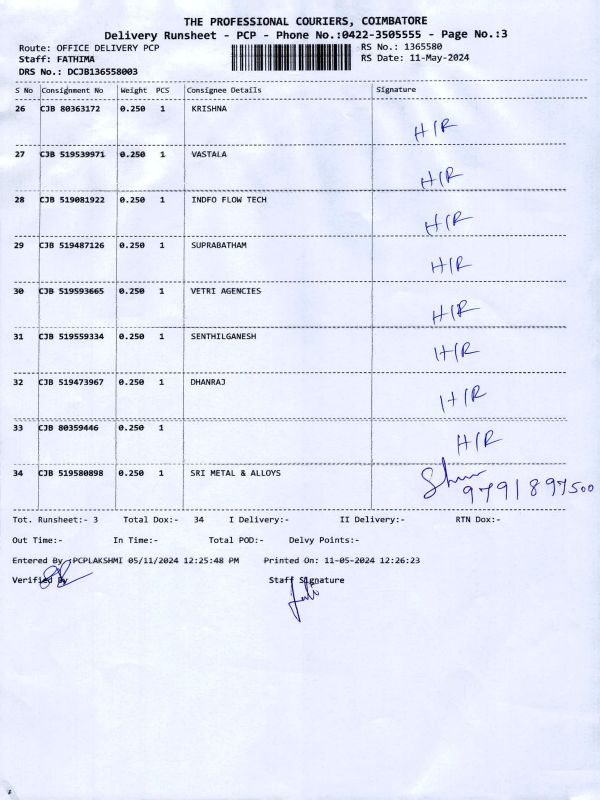 THE PROFESSIONAL COURIERS, COIMBATORE
Delivery Runsheet - PCP - Phone No.:0422-3505555 - Page No.:3
Route: OFFICE DELIVERY PCP RS No.: 1365580
Staff: FATHIMA RS Date: 11-May-2024
DRS No.: DCJB136558003
S No Consignment No Weight PCS Consignee Details Signature
26 CJB 80363172 0.250 1 KRISHNA H/R
27 CJB 519539971 0.250 1 VASTALA H/R
28 CJB 519081922 0.250 1 INDFO FLOW TECH H/R
29 CJB 519487126 0.250 1 SUPRABATHAM H/R
30 CJB 519593665 0.250 1 VETRI AGENCIES H/R
31 CJB 519559334 0.250 1 SENTHILGANESH H/R
32 CJB 519473967 0.250 1 DHANRAJ H/R
33 CJB 80359446 0.250 1 H/R
34 CJB 519580898 0.250 1 SRI METAL & ALLOYS 9791897500
Tot. Runsheet:- 3 Total Dox:- 34 I Delivery:- II Delivery:- RTN Dox:-
Out Time:- In Time:- Total POD:- Delvy Points:-
Entered By :PCPLAKSHMI 05/11/2024 12:25:48 PM Printed On: 11-05-2024 12:26:23
Verified By Staff Signature